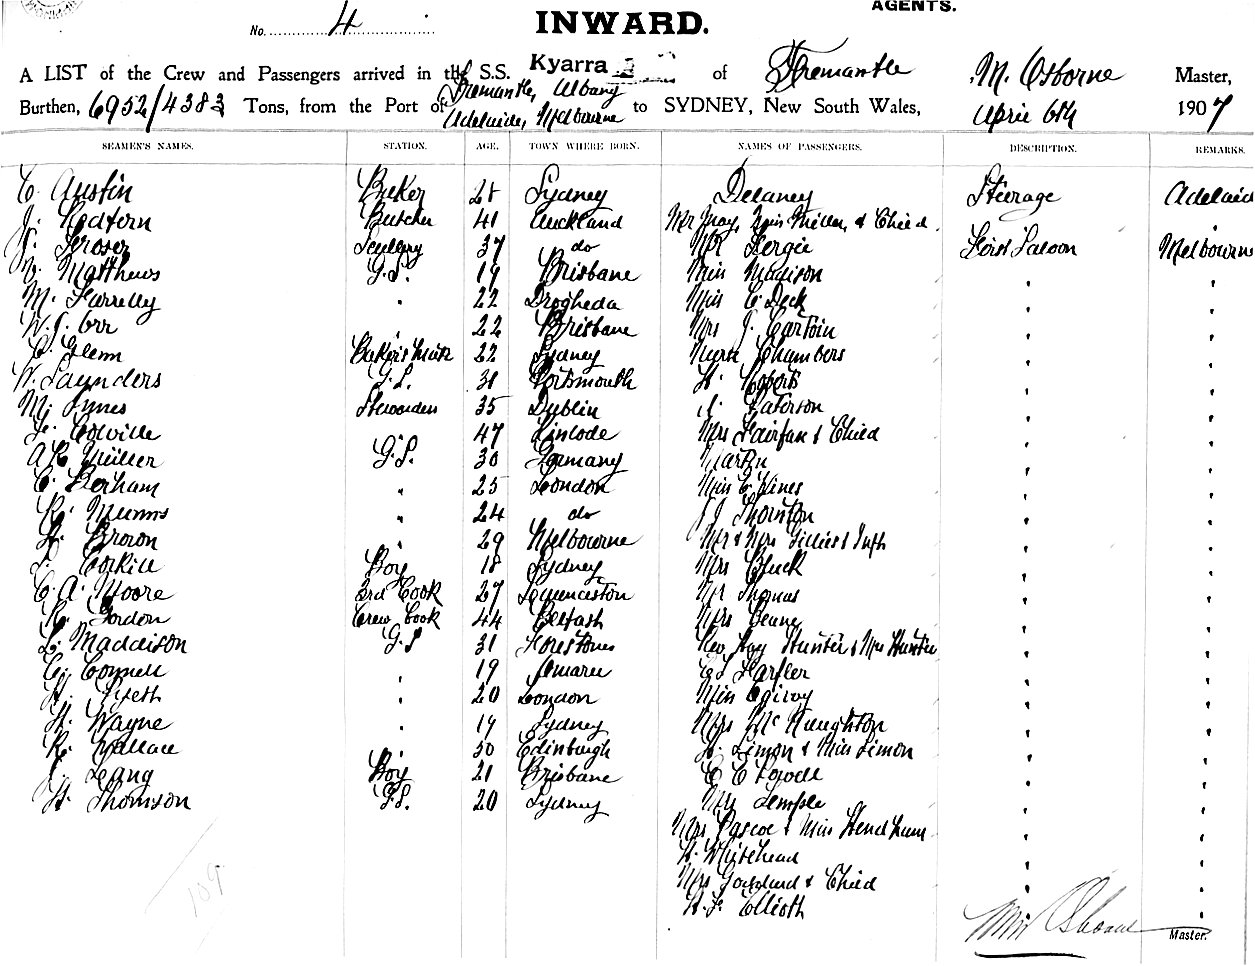 AGENTS.
No. 4
INWARD.
A LIST of the Crew and Passengers arrived in the S.S. Kyarra of Fremantle M. Osborne Master,
Burthen, 6952/4383 Tons, from the Port of Fremantle, Albany Adelaide, Melbourne to SYDNEY, New South Wales, April 6th 1907
SEAMEN'S NAMES. STATION. AGE. TOWN WHERE BORN. NAMES OF PASSENGERS. DESCRIPTION. REMARKS.
C. Austin Baker Sydney Delaney Steerage Adelaid
J. Butcher 41 Auckland Mr & Child
Scullery 37 do Mr First Saloon Melbourne
Matthews G.S. 19 Brisbane Miss Madison "
M. Farrelly " 22 Drogheda Miss C. Deck "
W. J. Orr " 22 Brisbane Mrs J. "
Glenn Baker's Mate 22 Sydney Nurse Chambers "
W. Saunders G.S. 31 Portsmouth Roberts "
M. Stewardess 35 Dublin Paterson "
Colville " 47 Mrs Fairfax & Child "
Müller G.S. 30 Germany Martin "
C. " 25 London Miss Hines "
R. Munns " 24 do Thornton "
Brown " 29 Melbourne Mr & Mrs Gillies & Infh "
Corkill Boy 18 Sydney Mrs Bluck "
C. A. Moore 3rd Cook 27 Launceston Mr Thomas "
R. Gordon Crew Cook 44 Belfast Mrs "
L. Maddison G.S 31 Rev Hay Hunter & Mrs Hunter "
C. Connell " 19 Omaru "
H. " 20 London Miss Ogilvy "
H. Wayne " 19 Sydney Mrs McNaughton "
R. Wallace " 30 Edinburgh Simon & Miss Simon "
Lang Boy 21 Brisbane C C Lowell "
H. Thomson G.S. 20 Sydney Mrs Temple "
Mrs Pascoe & Miss "
H. Whitehead "
Mrs & Child "
H. F. Elliott "
109
Master.